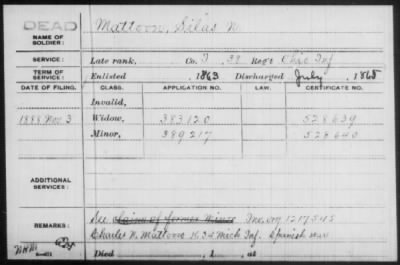 DEAD
NAME OF SOLDIER:
Mattoon, Silas N.
SERVICE:
Late rank, Co. I, 39 Reg't Ohio Inf
TERM OF SERVICE:
Enlisted 1863 Discharged July 1865
DATE OF FILING. CLASS. APPLICATION NO. LAW. CERTIFICATE NO.
Invalid,
1888 Nov 3 Widow, 383120 528639
Minor, 389217 528640
ADDITIONAL SERVICES:
REMARKS:
See claim of former Minor Inv. org 1217545
Charles N. Mattoon K. 34 Mich Inf. Spanish war
Died , 1 , at